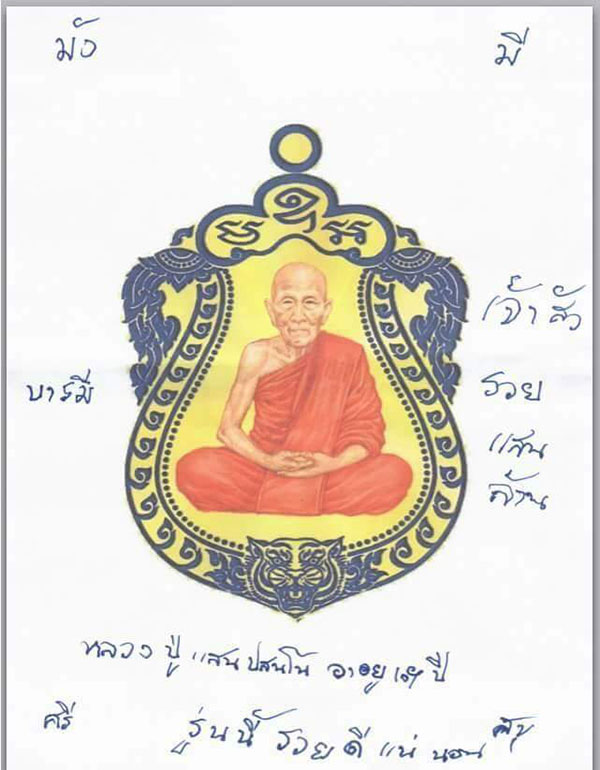 มั่ง
มี
เจ้าสัว
บารมี
รวย
แสน
ล้าน
หลวงปู่แสน ปสนฺโน อายุ ปี
ศรี
รุ่นนี้ รวยดี แน่นอน